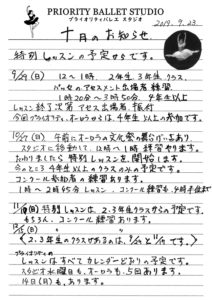 PRIORITY BALLET STUDIO
プライオリティバレエ スタジオ
2019.9.23.
十月のお知らせ
特別レッスンの予定からです。
9/29(日) 12〜1時. 2年生 3年生クラス.
バッセのアセスメント出場者 練習
1時20分〜3時50分. 4年生以上
レッスン終了次第 アセス出場者. 振付
今回プライオリティ.オーロラからは. 4年生以上の参加です。
午前. オーロラの文化祭の舞台があり
スタジオに移動して. 12時〜1時練習やります。
おわりましたら 特別レッスンを開始します。
今のところ4年生以上のクラスのみの予定です。
コンクール参加者の練習もあります。
1時〜2時45分 レッスン. コンクール練習も
特別レッスンは. 2.3年生クラスからの予定です。
もちろん. コンクール練習あります。
〈2.3年生のクラスがあるのは. 9/29と11/17です。〉
プライオリティの
レッスンはすべてカレンダーどおりの予定です。
スタジオ水曜日も. オーロラも. 5回あります。
14日(月)も. あります。